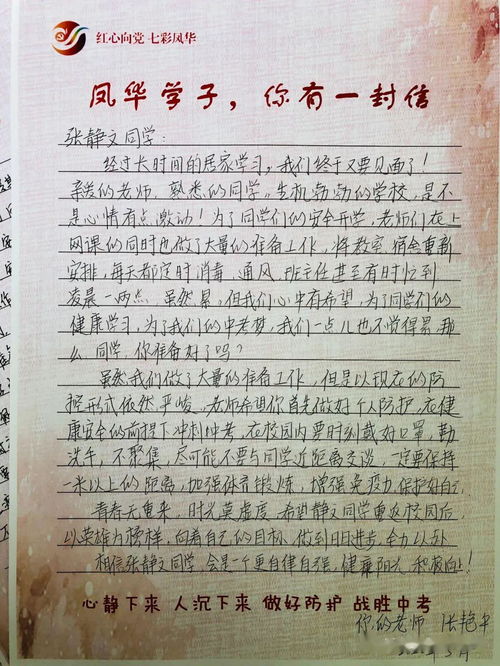 红心向党 七彩风华
凤华学子，你有一封信
张静文同学：
经过长时间的居家学习，我们终于又要见面了！
亲爱的老师，熟悉的同学。生机勃勃的学校，是不
是心情有点激动！为了同学们的安全开学，老师们在上
网课的同时也做了大量的准备工作，将教室 宿舍重新
安排，每天都定时消毒 通风，班主任甚至有时忙到
凌晨一两点，虽然累，但我们心中有希望，为了同学们的
健康学习，为了我们的中考梦，我们一点儿也不觉得累，那
么 同学，你准备好了吗？
虽然我们做了大量的准备工作，但是以现在的防
控形式依然严峻，老师希望你首先做好个人防护，在健
康安全的前提下冲刺中考，在校园内要时刻戴好口罩，勤
洗手，不聚集，尽可能不要与同学近距离交谈，一定要保持
一米以上的距离，加强体育锻炼，增强免疫力，保护好自己
青春无重来，时光莫虚度，希望静文同学重返校园后
以英雄为榜样，向着自己的目标，做到日日进步，全力以赴
相信张静文同学 会是一个更自律自强，健康阳光 积极向上！
心静下来 人沉下来 做好防护 战胜中考
你的老师 张艳平
5月